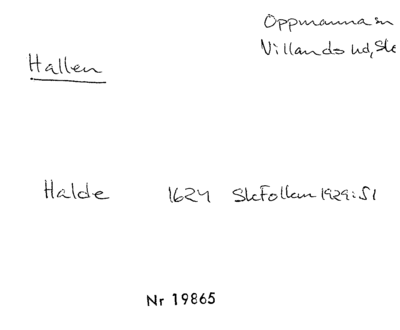 Oppmanna sn
Villands hd, Sk
Hallen
Halde 1624 SkFolkm 1929:51
Nr 19865